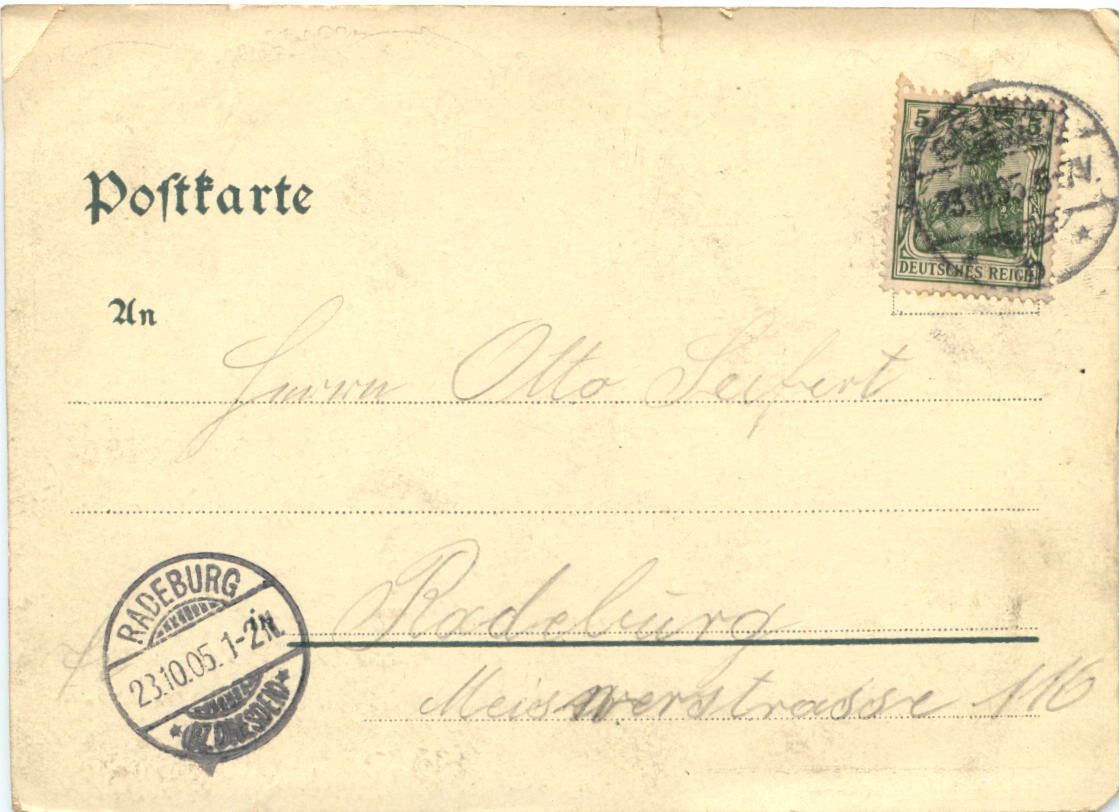 5 5
23.10.05. 8-
DEUTSCHES REICH
Postkarte
An
Herrn Otto Seifert
Radeburg
RADEBURG
23.10.05. 1-2N.
*(BZ. DRESDEN)*
Meisnerstrasse 116